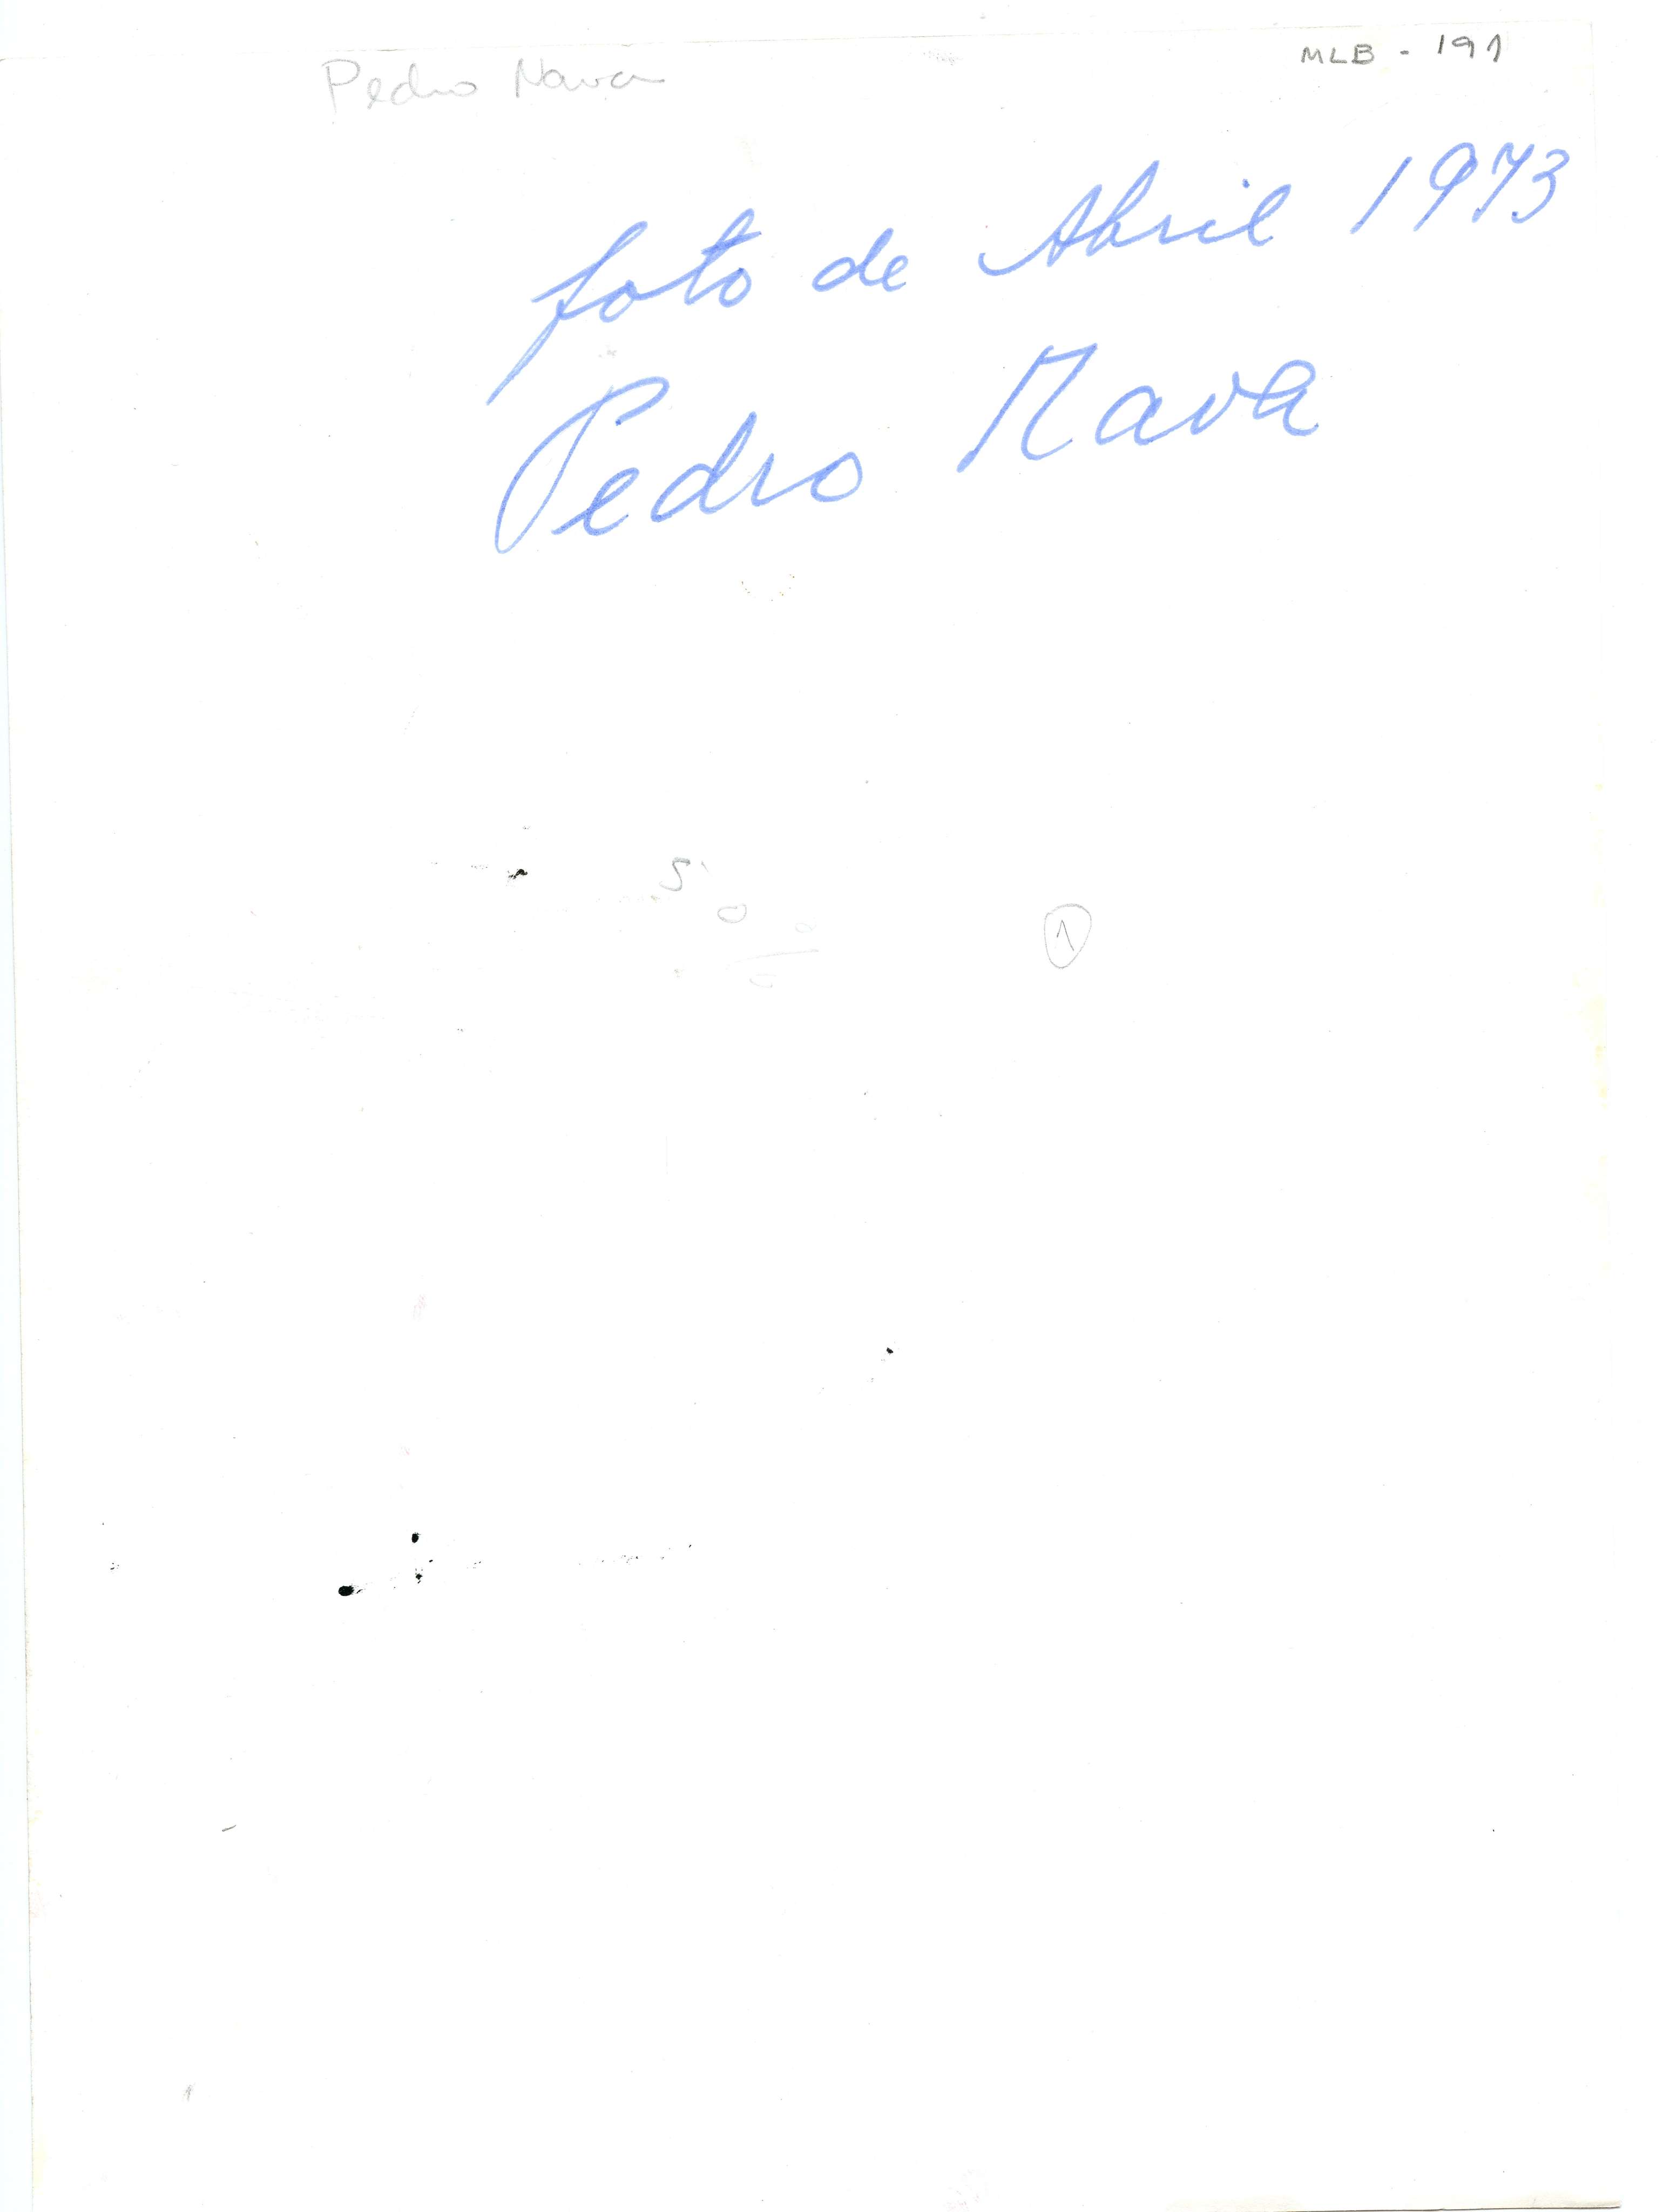 Pedro Nava
MLB - 191
foto de Abril 1973
Pedro Nava
50 %
1